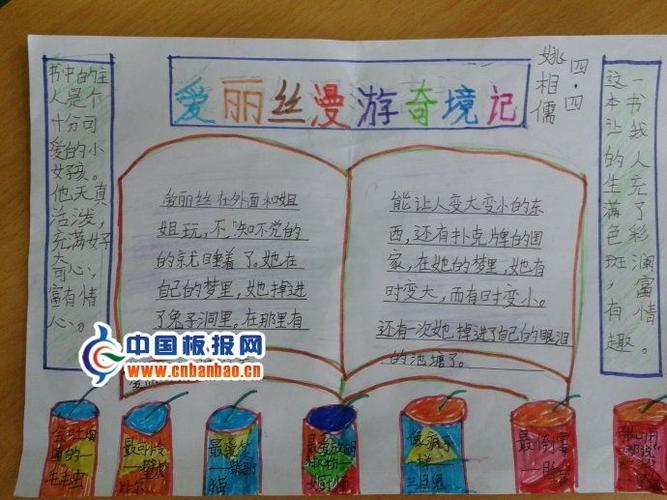 爱丽丝漫游奇境记
四.四
姚相儒
书中的主
人是个
十分可
爱的小
女孩。
他天真
活泼，
充满好
奇心，
富有情
心。
爱丽丝在外面和姐
姐玩，不知不觉的
的就睡着了。她在
自己的梦里，她掉进
了兔子洞里。在那里有
能让人变大变小的东
西，还有扑克牌的国
家，在她的梦里，她有
时变大，而有时变小。
还有一次她掉进了自己的眼泪
的池塘了。
这本让的生满色斑，有趣
一书我人充了彩澜富情。
中国板报网
www.cnbanbao.cn
会吐烟
圈的一
毛毛虫
最可怜
最爱
最倒霉
三月兔